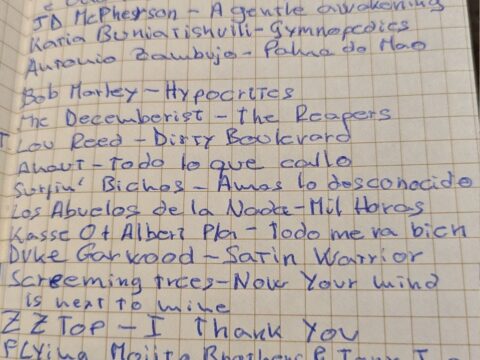 JD McPherson - A gentle awakening
Katia Buniatishvili - Gymnopedies
Antonio Zambujo - Palma da Mao
Bob Marley - Hypocrites
The Decemberist - The Reapers
Lou Reed - Dirty Boulevard
Anaut - Todo lo que callo
Surfin' Bichos - Amas lo desconocido
Los Abuelos de la Nada - Mil Horas
Kasse Ot Albert Pla - Todo me va bien
Duke Garwood - Satin Warrior
Screeming trees - Now Your mind
is next to mine
ZZ Top - I Thank You
Flying Mojito Brothers &